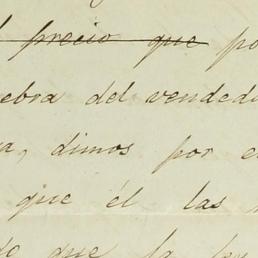 precio que po
ebra del vended
a, dimos por e
que él las
que la